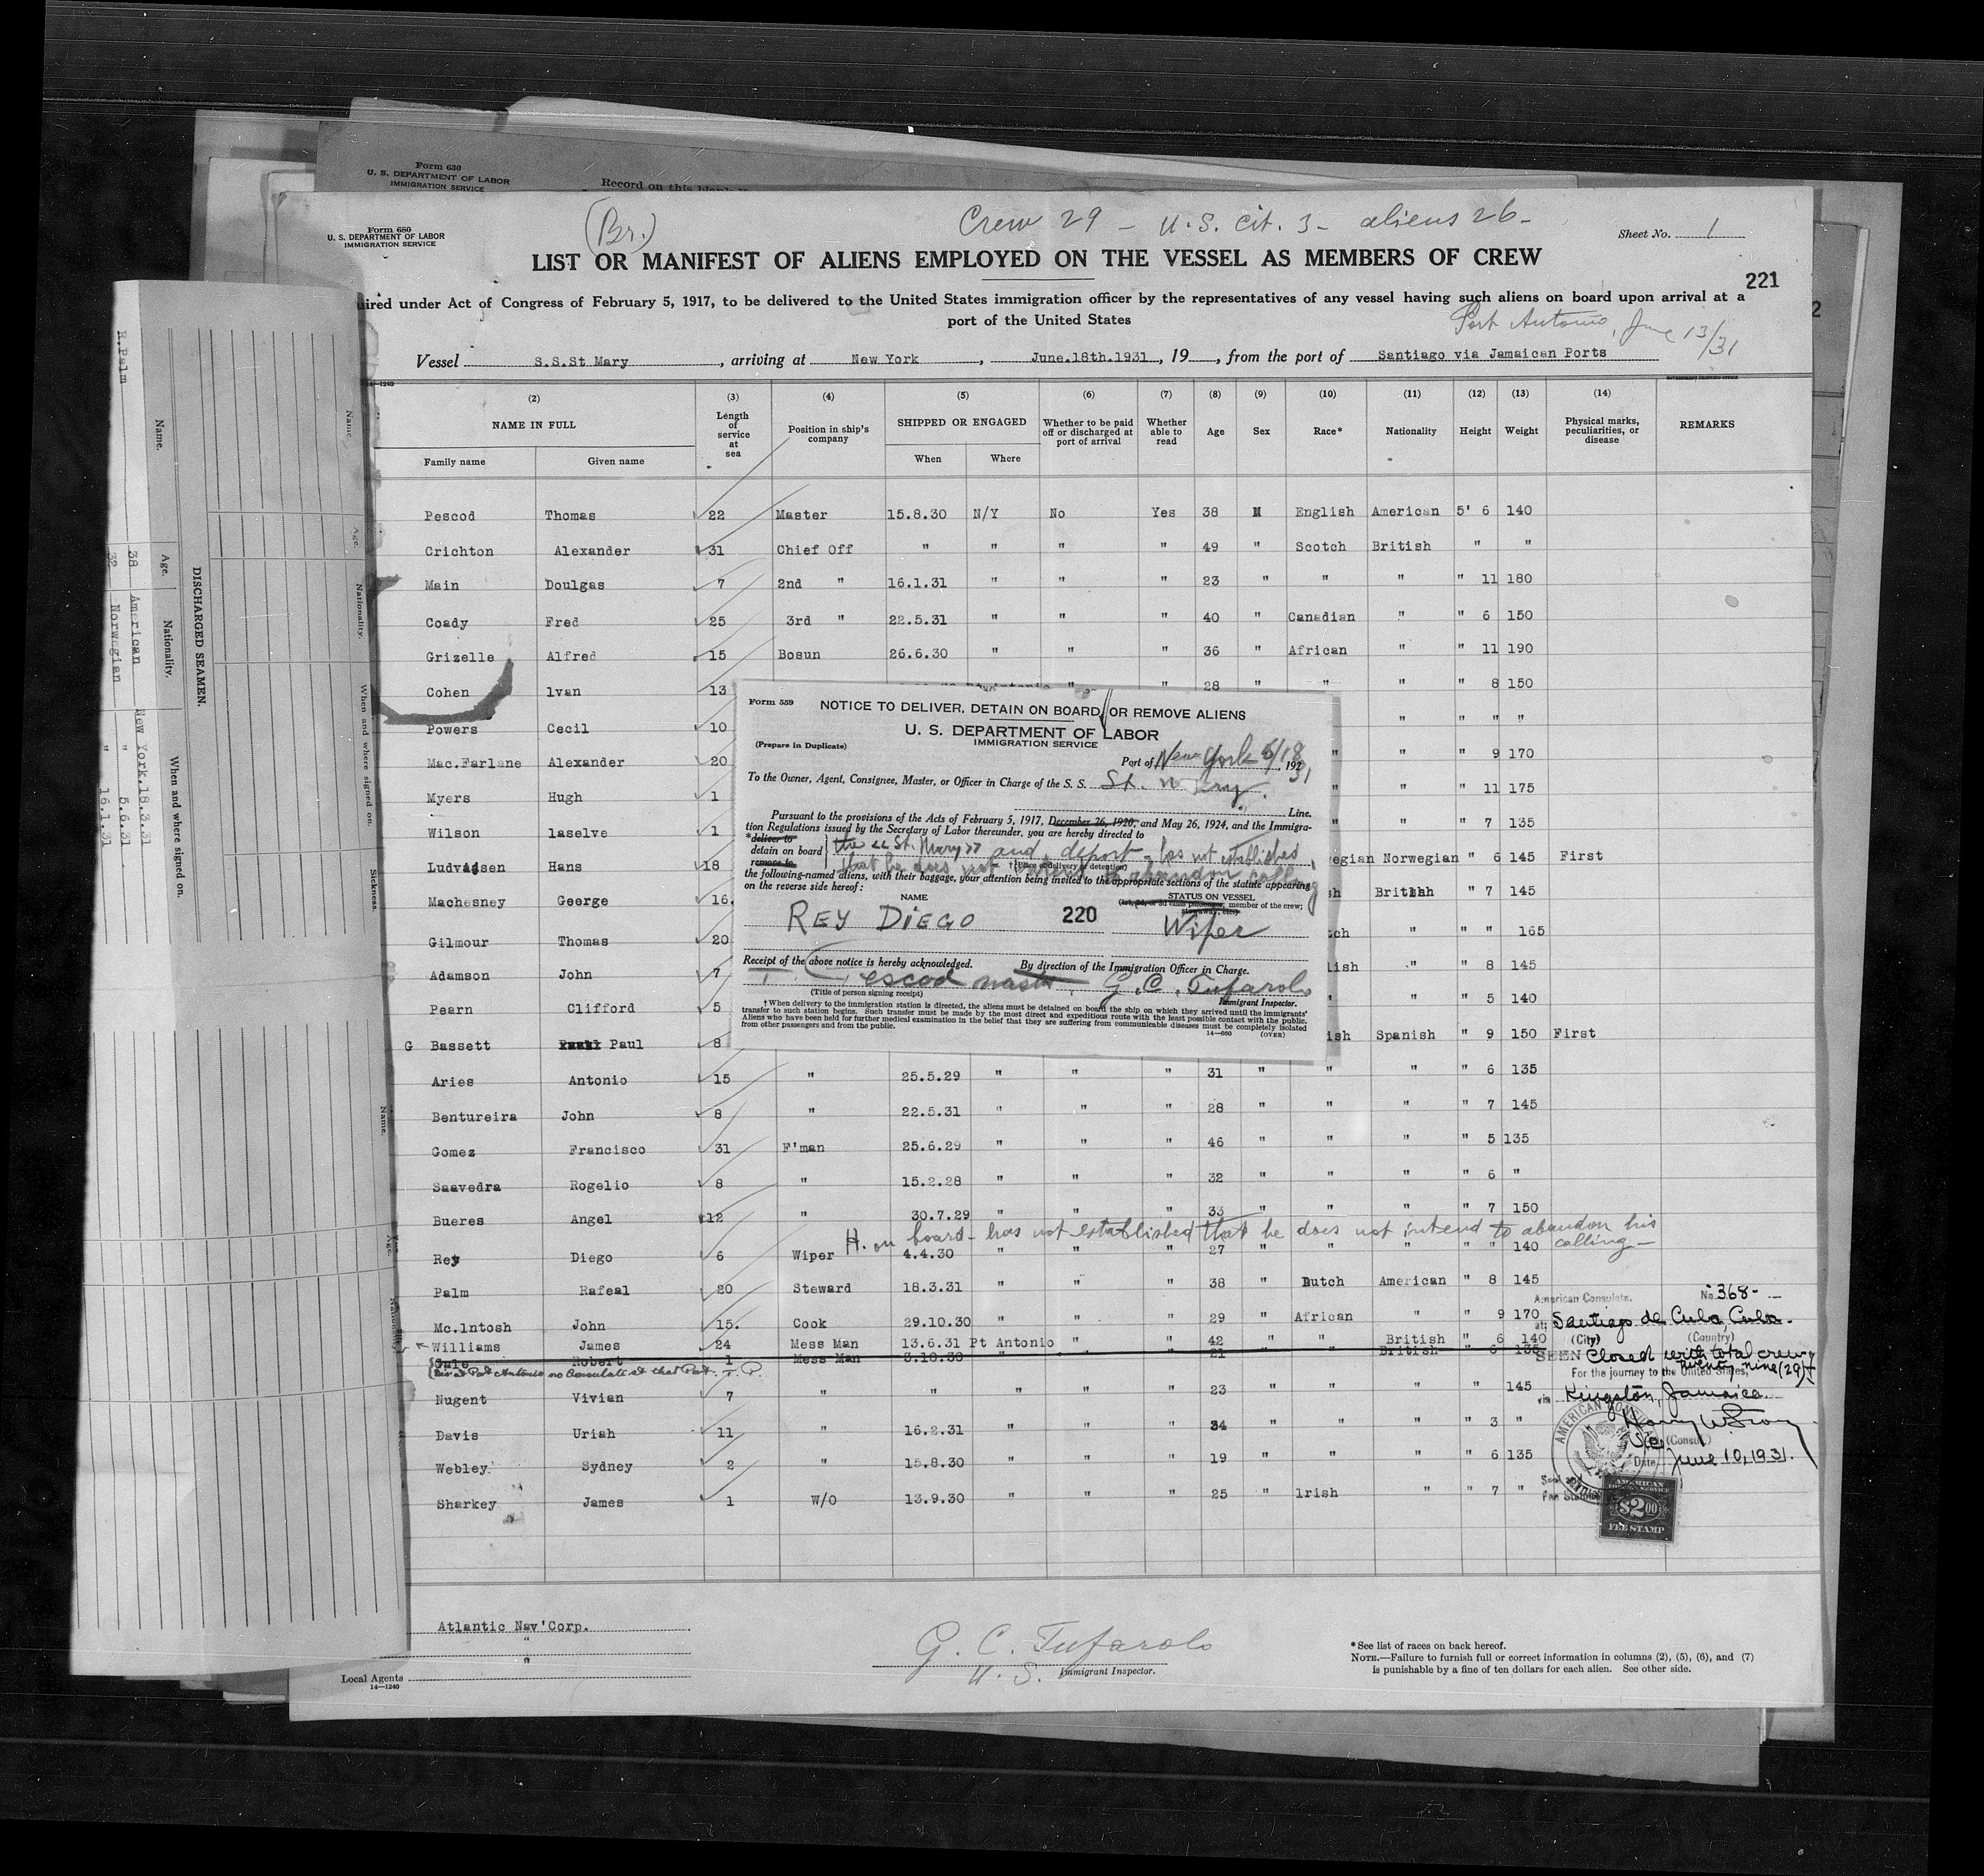 Form 630
U. S. DEPARTMENT OF LABOR
IMMIGRATION SERVICE
Record on this blank
Form 680
U. S. DEPARTMENT OF LABOR
IMMIGRATION SERVICE
(Br.)
Crew 29 - U.S. cit. 3 - aliens 26 -
Sheet No. 1
LIST OR MANIFEST OF ALIENS EMPLOYED ON THE VESSEL AS MEMBERS OF CREW
221
uired under Act of Congress of February 5, 1917, to be delivered to the United States immigration officer by the representatives of any vessel having such aliens on board upon arrival at a
port of the United States
Port Antonio, June 13/31
Vessel S.S.St Mary, arriving at New York, June.18th.1931, 19, from the port of Santiago via Jamaican Ports
14-1240
(2) (3) (4) (5) (6) (7) (8) (9) (10) (11) (12) (13) (14)
NAME IN FULL Length of service at sea Position in ship's company SHIPPED OR ENGAGED Whether to be paid off or discharged at port of arrival Whether able to read Age Sex Race* Nationality Height Weight Physical marks, peculiarities, or disease REMARKS
Family name Given name When Where
Pescod Thomas 22 Master 15.8.30 N/Y No Yes 38 M English American 5' 6 140
Crichton Alexander 31 Chief Off " " " " 49 " Scotch British " "
Main Doulgas 7 2nd " 16.1.31 " " " 23 " " " " 11 180
Coady Fred 25 3rd " 22.5.31 " " " 40 " Canadian " " 6 150
Grizelle Alfred 15 Bosun 26.6.30 " " " 36 " African " " 11 190
Cohen lvan 13 " " 28 " " " " 8 150
Powers Cecil 10 " " " "
Mac.Farlane Alexander 20 " " 9 170
Myers Hugh 1 " " " 11 175
Wilson laselve 1 " " " 7 135
Ludvigsen Hans 18 egian Norwegian " 6 145 First
Machesney George 16. sh British " 7 145
Gilmour Thomas 20 tch " " " 165
Adamson John 7 lish " " 8 145
Pearn Clifford 5 " " " 5 140
G Bassett Paul 8 ish Spanish " 9 150 First
Form 559
NOTICE TO DELIVER, DETAIN ON BOARD, OR REMOVE ALIENS
U. S. DEPARTMENT OF LABOR
IMMIGRATION SERVICE
(Prepare in Duplicate)
Port of New York 6/18, 1931
To the Owner, Agent, Consignee, Master, or Officer in Charge of the S. S. St. Mary.
Line.
Pursuant to the provisions of the Acts of February 5, 1917, December 26, 1920, and May 26, 1924, and the Immigra-
tion Regulations issued by the Secretary of Labor thereunder, you are hereby directed to
*deliver to
detain on board the "St. Mary" and deport - has not established
remove to that he does not intend to abandon calling
†(Place of delivery or detention)
the following-named aliens, with their baggage, your attention being invited to the appropriate sections of the statute appearing
on the reverse side hereof:
NAME STATUS ON VESSEL
(1st, 2d, or 3d class passenger, member of the crew;
stowaway, etc.)
REY DIEGO 220 Wiper
Receipt of the above notice is hereby acknowledged. By direction of the Immigration Officer in Charge.
T. Pescod master. G. C. Tufarolo
(Title of person signing receipt) Immigrant Inspector.
† When delivery to the immigration station is directed, the aliens must be detained on board the ship on which they arrived until the immigrants'
transfer to such station begins. Such transfer must be made by the most direct and expeditious route with the least possible contact with the public.
Aliens who have been held for further medical examination in the belief that they are suffering from communicable diseases must be completely isolated
from other passengers and from the public.
14-660 (OVER)
Aries Antonio 15 " 25.5.29 " " " 31 " " " " 6 135
Bentureira John 8 " 22.5.31 " " " 28 " " " " 7 145
Gomez Francisco 31 F'man 25.6.29 " " " 46 " " " " 5 135
Saavedra Rogelio 8 " 15.2.28 " " " 32 " " " " 6 "
Bueres Angel 12 " 30.7.29 " " " 33 " " " " 7 150
H. on board - has not established that he does not intend to abandon his calling -
Rey Diego 6 Wiper 4.4.30 " " " 27 " " " " " 140
Palm Rafeal 20 Steward 18.3.31 " " " 38 " Dutch American " 8 145
Mc.lntosh John 15. Cook 29.10.30 " " " 29 " African " " 9 170
Williams James 24 Mess Man 13.6.31 Pt Antonio " " 42 " " British " 6 140
Gale Robert 1 Mess Man 3.10.30 " " " 21 British " 6 135
at Port Antonio no Consulate at that Port. T. P.
Nugent Vivian 7 " " " " " 23 " " " " 145
Davis Uriah 11 " 16.2.31 " " " 34 " " " " 3 "
Webley Sydney 2 " 15.8.30 " " " 19 " " " " 6 135
Sharkey James 1 W/O 13.9.30 " " " 25 " lrish " " 7 "
American Consulate. No. 368-
at: Santiago de Cuba, Cuba.
(City) (Country)
SEEN Closed with total crew
twenty nine (29)
For the journey to the United States,
via Kingston, Jamaica.
Vice (Consul)
Date June 10, 1931.
AMERICAN
Fee Stamp
AMERICAN
FOREIGN SERVICE
$2.00
FEE STAMP
Atlantic Nav'Corp.
"
"
Local Agents
14-1240
G. C. Tufarolo
U. S. Immigrant Inspector.
*See list of races on back hereof.
NOTE.—Failure to furnish full or correct information in columns (2), (5), (6), and (7)
is punishable by a fine of ten dollars for each alien. See other side.
DISCHARGED SEAMEN.
Name. Age. Nationality. When and where signed on.
38 American New York.18.3.31
" 5.6.31
R.Palm 32 Norwegian " 16.1.31
Name. Age. Nationality. When and where signed on. Sickness.
Name. Age. Nationality.